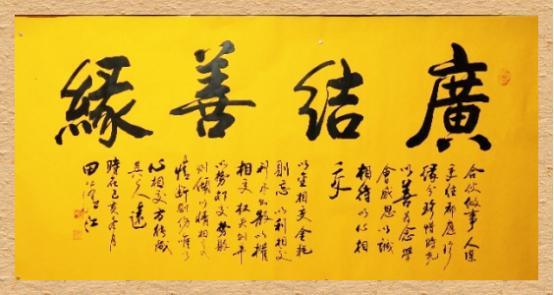 廣結善緣
合伙做事人際
交往都應
緣分珍惜時光
以善為念學
會感恩以誠
相待以心相
交
以金相交金耗
則忘以利相交
利盡則散以權
相交權失則
以勢相交勢敗
則傾以情相交
情斷則傷唯有
心相交方能成
其久遠
時在己亥月
田江